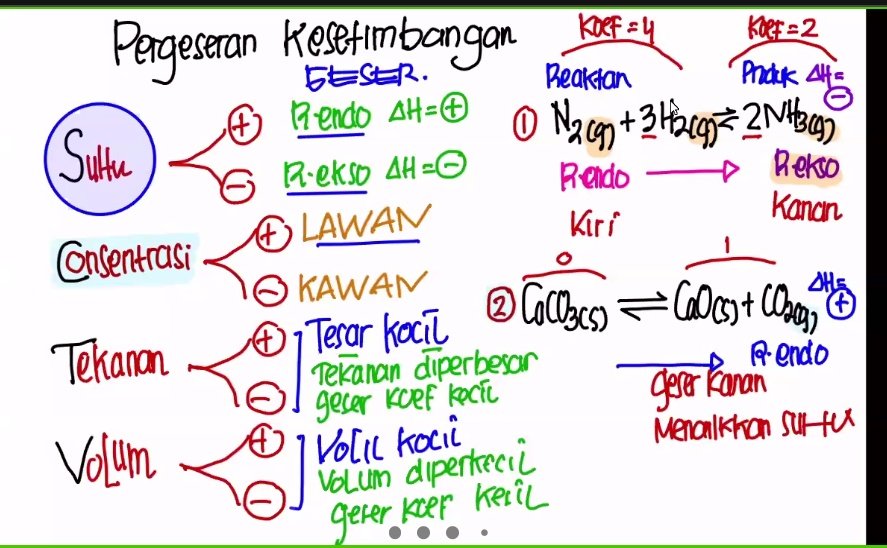 Pergeseran Kesetimbangan
GESER.
Suhu
+ R.endo ΔH=+
- R.ekso ΔH=-
Consentrasi
+ LAWAN
- KAWAN
Tekanan
+
-
Tesar kocil
Tekanan diperbesar
geser koef kecil
Volum
+
-
Volil kocil
Volum diperkecil
geser koef kecil
Koef = 4
Koef = 2
Reaktan
Produk ΔH= -
① N2(g) + 3H2(g) ⇌ 2NH3(g)
R.endo → R.ekso
Kiri
Kanan
0
1
② CaCO3(s) ⇌ CaO(s) + CO2(g) ΔH= +
→ R.endo
geser Kanan
Menaikkan suhu